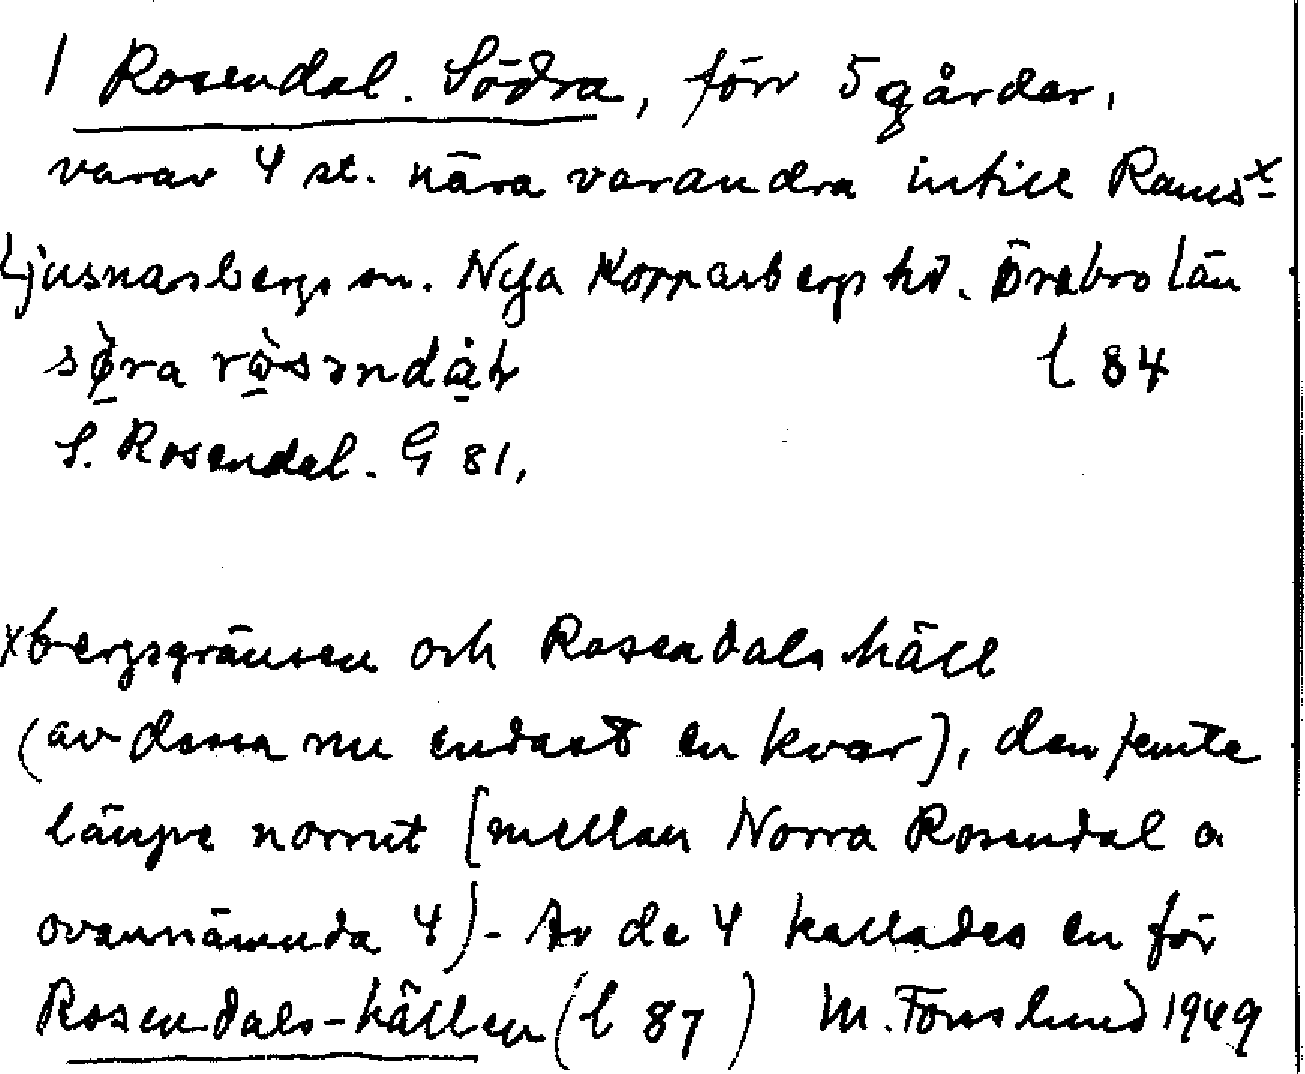 1 Rosendal. Södra, förr 5 gårdar,
varav 4 st. nära varandra intill Rams x-
Ljusnarsbergs sn. Nya Kopparbergs hd. Örebro län
l 84
S. Rosendal. G 81,
x bergsgränsen och Rosendals häll
(av dessa nu endast en kvar), den femte
längre norrut [mellan Norra Rosendal o
ovannämnda 4) - Av de 4 kallades en för
Rosendals-hällen (l 87) M. Fornslund 1949